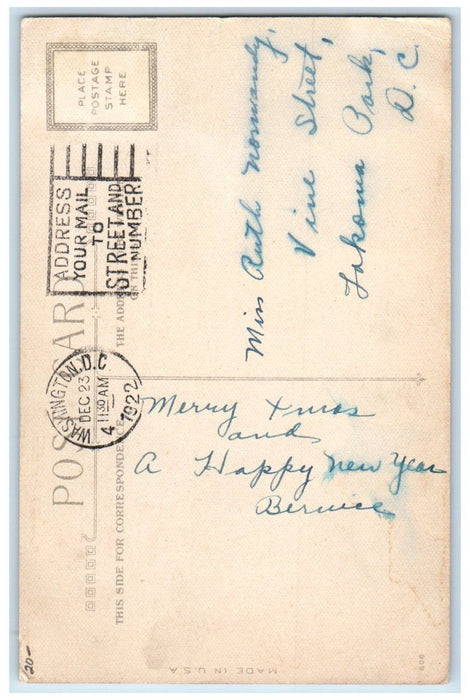 PLACE
POSTAGE
STAMP
HERE
ADDRESS
YOUR MAIL
TO
STREET AND
NUMBER
WASHINGTON, D.C.
DEC 23
11:30 AM
1922
4
POST CARD
THIS SIDE FOR CORRESPONDENCE
THE ADDRESS
Miss Ruth Normandy,
Vine Street,
Takoma Park,
D. C.
Merry Xmas
and
A Happy New Year
Bernice
MADE IN U.S.A
20-